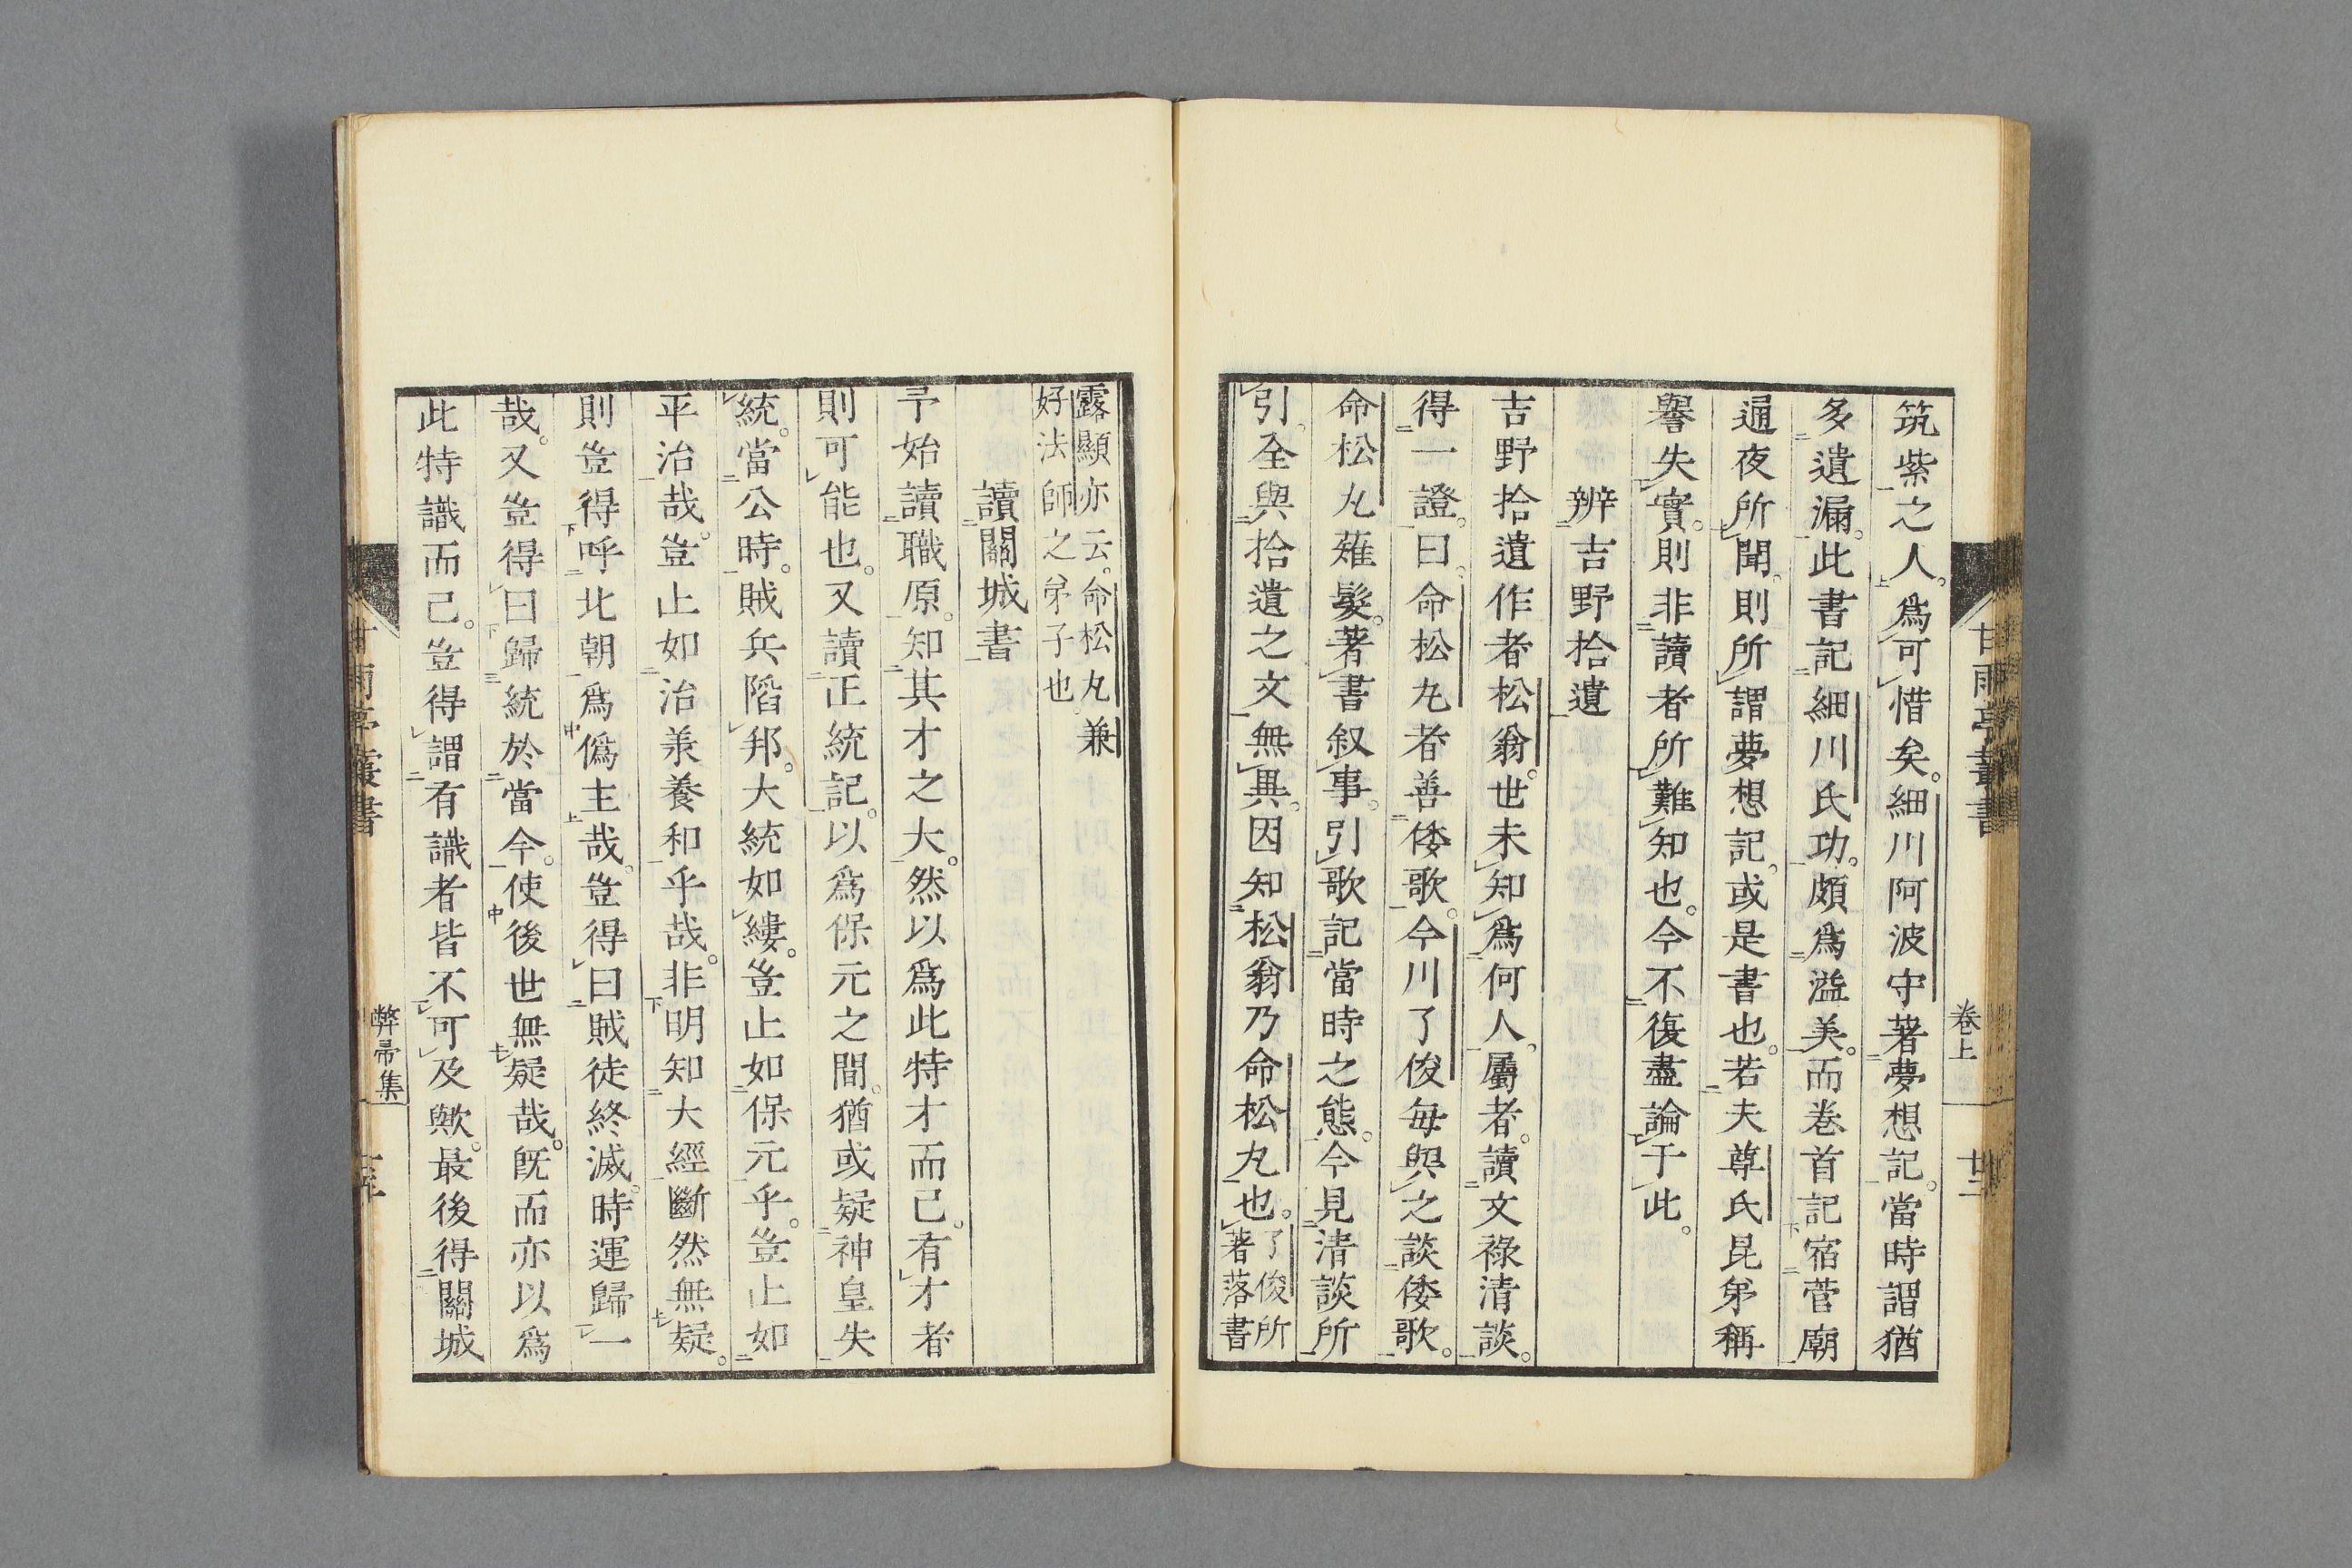 筑紫之人。爲可惜矣。細川阿波守著夢想記。當時謂猶
多遺漏。此書記細川氏功。頗爲溢美。而卷首記宿菅廟
通夜所聞。則所謂夢想記。或是書也。若夫尊氏昆弟稱
譽失實。則非讀者所難知也。今不復盡論于此。
辨吉野拾遺
吉野拾遺作者松翁。世未知爲何人。屬者。讀文祿清談。
得一證。曰。命松丸者善倭歌。今川了俊每與之談倭歌。
命松丸薙髮。著書叙事。引歌記當時之態。今見清談所
引。全與拾遺之文無異。因知松翁乃命松丸也。了俊所著落書
露顯亦云。命松丸兼好法師之弟子也。
讀關城書
予始讀職原。知其才之大。然以爲此特才而已。有才者
則可能也。又讀正統記。以爲保元之間。猶或疑神皇失
統。當公時。賊兵陷邦。大統如縷。豈止如保元乎。豈止如
平治哉。豈止如治承養和乎哉。非明知大經斷然無疑。
則豈得呼北朝爲僞主哉。豈得曰賊徒終滅。時運歸一
哉。又豈得曰歸統於當今。使後世無疑哉。旣而亦以爲
此特識而已。豈得謂有識者皆不可及歟。最後得關城
甘雨亭叢書
卷上
廿二
甘雨亭叢書
弊帚集